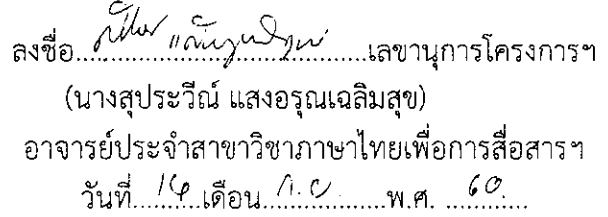 ลงชื่อ....................เลขานุการโครงการฯ
(นางสุประวีณ์ แสงอรุณเฉลิมสุข)
อาจารย์ประจำสาขาวิชาภาษาไทยเพื่อการสื่อสารฯ
วันที่..14..เดือน..ก.ย.......พ.ศ. ..60....